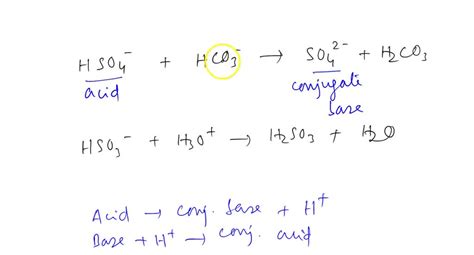 HSO₄⁻ + HCO₃⁻ → SO₄²⁻ + H₂CO₃
acid conjugate
base
HSO₃⁻ + H₃O⁺ → H₂SO₃ + H₂O
Acid → conj. base + H⁺
Base + H⁺ → conj. acid